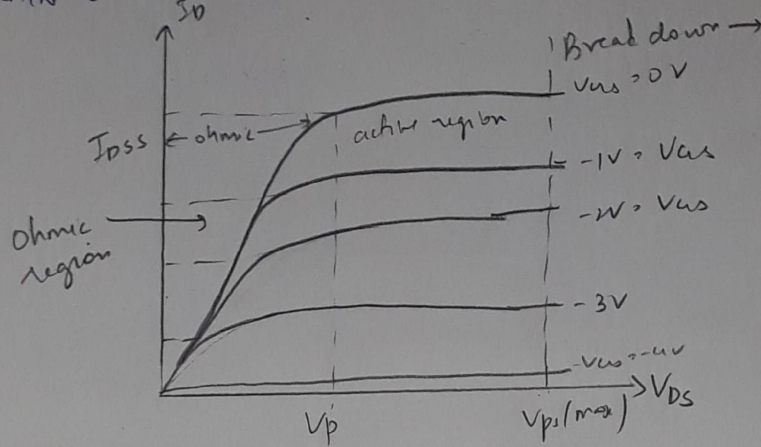 ID
Break down →
VGS = 0V
IDSS
← ohmic →
active region
-1V = VGS
-2V = VGS
Ohmic
region
-3V
-VGS = -4V
VDS
Vp
VDS (max)